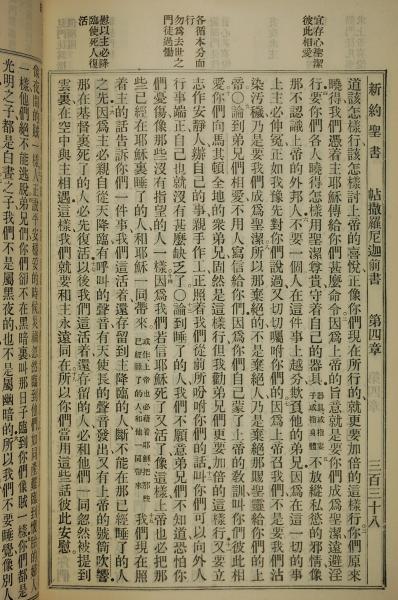 新約聖書 帖撒羅尼迦前書 第四章 三百三十八
宜存心聖潔
彼此相愛
各循本分而
行
勿為去世之
門徒過慟
慰以主必降
臨使死人復
活
道該怎樣行該怎樣討上帝的喜悅正像你們現在所行的就更要加倍的這樣行你們原來
曉得我們憑着主耶穌傳給你們甚麼命令因爲上帝的旨意就是要你們成爲聖潔遠避淫
行要你們各人曉得怎樣用聖潔尊貴守着自己的器具器具或指妻子或指身體不放縱私慾的邪情像
那不認識上帝的外邦人不要一個人在這件事上越分欺負他的弟兄因爲在這一切的事
上主必伸冤正如我豫先對你們說過又切切囑咐你們的因爲上帝召我們不是要我們沾
染汚穢乃是要我們成爲聖潔所以那棄絕的不是棄絕人乃是棄絕那賜聖靈給你們的上
帝○論到弟兄們相愛不用人寫信給你們因爲你們自己蒙了上帝的教訓叫你們彼此相
愛你們向馬其頓全地的衆弟兄固然是這樣行但我勸弟兄們更要加倍的這樣行又要立
志作安靜人辦自己的事親手作工正照着我們從前所吩咐你們的話叫你們可以向外人
行事端正自己也就沒有甚麼缺乏了○論到睡了的人我們不願意弟兄們不知道恐怕你
們憂傷像那些沒有指望的人一樣因爲我們若信耶穌死了又活了像這樣上帝也必把那
些已經在耶穌裏睡了的人和耶穌一同帶來或作上帝也必藉着耶穌把那些已經睡了的人和他一同帶來我們現在照
着主的話告訴你們一件事我們這活着還存留到主降臨的人斷不能在那已經睡了的人
之先因爲主必親自從天降臨有呼叫的聲音有天使長的聲音發出又有上帝的號筒吹響
那在基督裏死了的人必先復活以後我們這活着還存留的人必和他們一同忽然被提到
雲裏在空中與主相遇這樣我們就要和主永遠同在所以你們當用這些話彼此安慰
一樣他們絕不能逃脫弟兄們你們卻不在黑暗裏叫那日子臨到你們像賊一樣你們都是
光明之子都是白晝之子我們不是屬黑夜的也不是屬幽暗的所以我們不要睡覺像別人